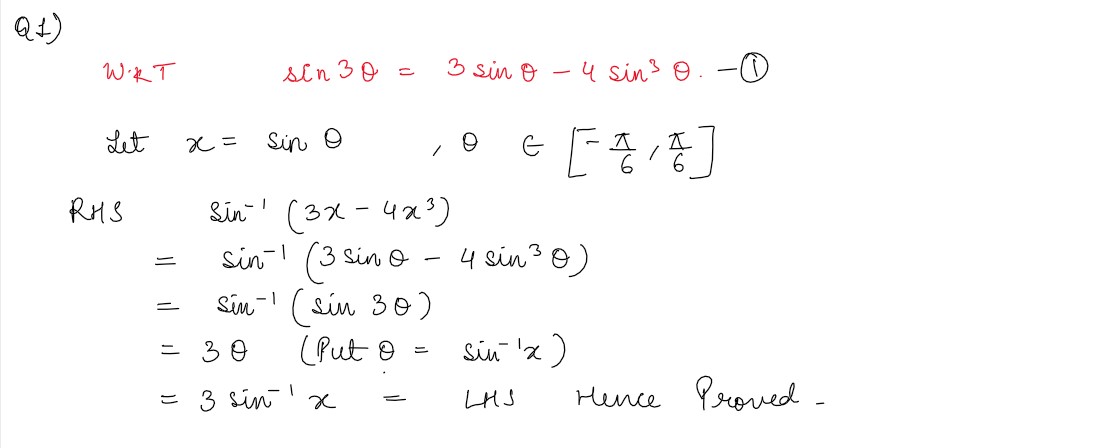 Q1)
W.K.T sin 3θ = 3 sin θ − 4 sin³ θ. −①
Let x = sin θ , θ ∈ [−π/6, π/6]
RHS sin⁻¹ (3x − 4x³)
= sin⁻¹ (3 sin θ − 4 sin³ θ)
= sin⁻¹ (sin 3θ)
= 3θ (Put θ = sin⁻¹x)
= 3 sin⁻¹ x = LHS Hence Proved -